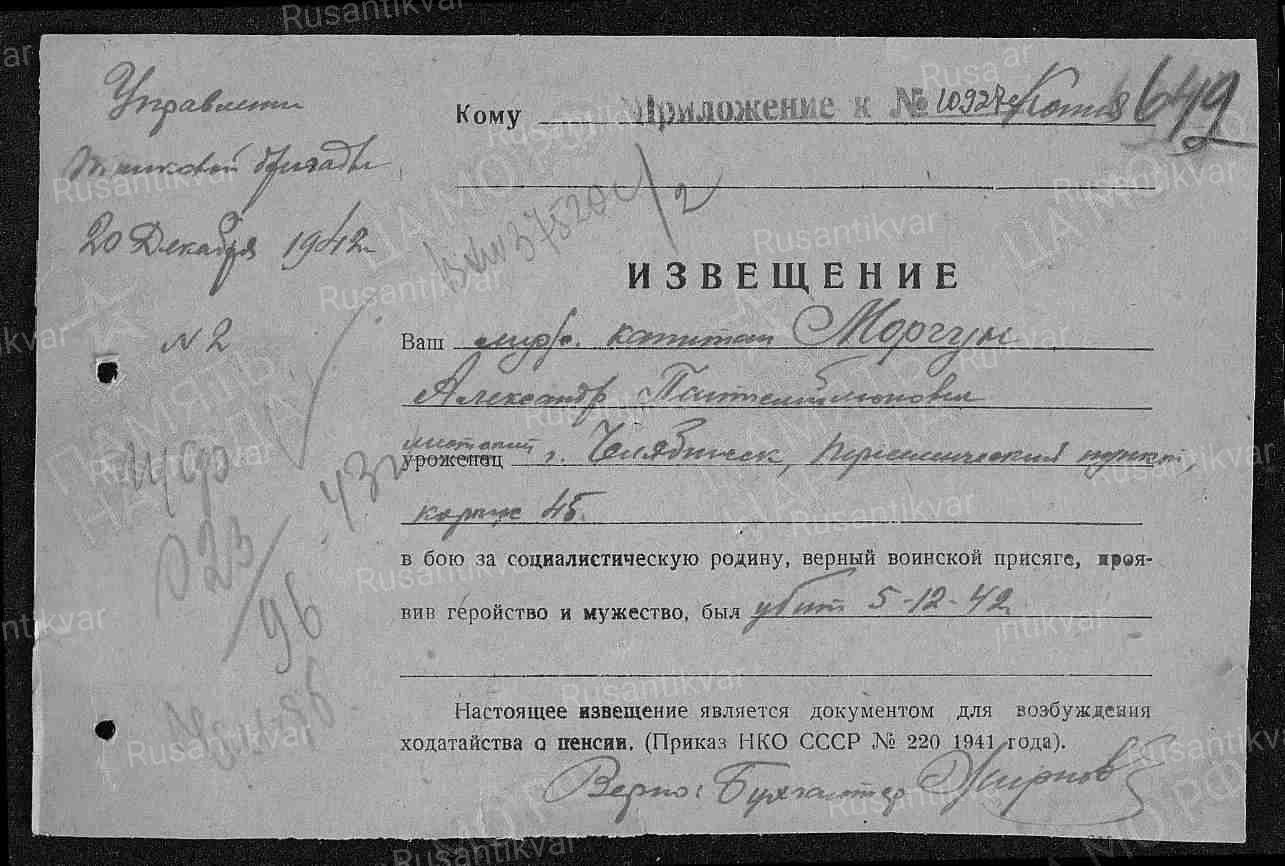 Управление
танковой бригады
20 Декабря 1942 г.
№ 2
Кому Приложение к № 10927с 649
ИЗВЕЩЕНИЕ
Ваш муж. капитан Моргун
Александр Пантелеймонович
уроженец г. Челябинск, пункт,
корпус 45.
в бою за социалистическую родину, верный воинской присяге, прояв-
вив геройство и мужество, был убит 5-12-42 г.
Настоящее извещение является документом для возбуждения
ходатайства о пенсии. (Приказ НКО СССР № 220 1941 года).
Верно: Бухгалтер Жирнов
вх № 37520с/2
43 г
023/96
Rusantikvar
ЦА МО РФ
ПАМЯТЬ НАРОДА